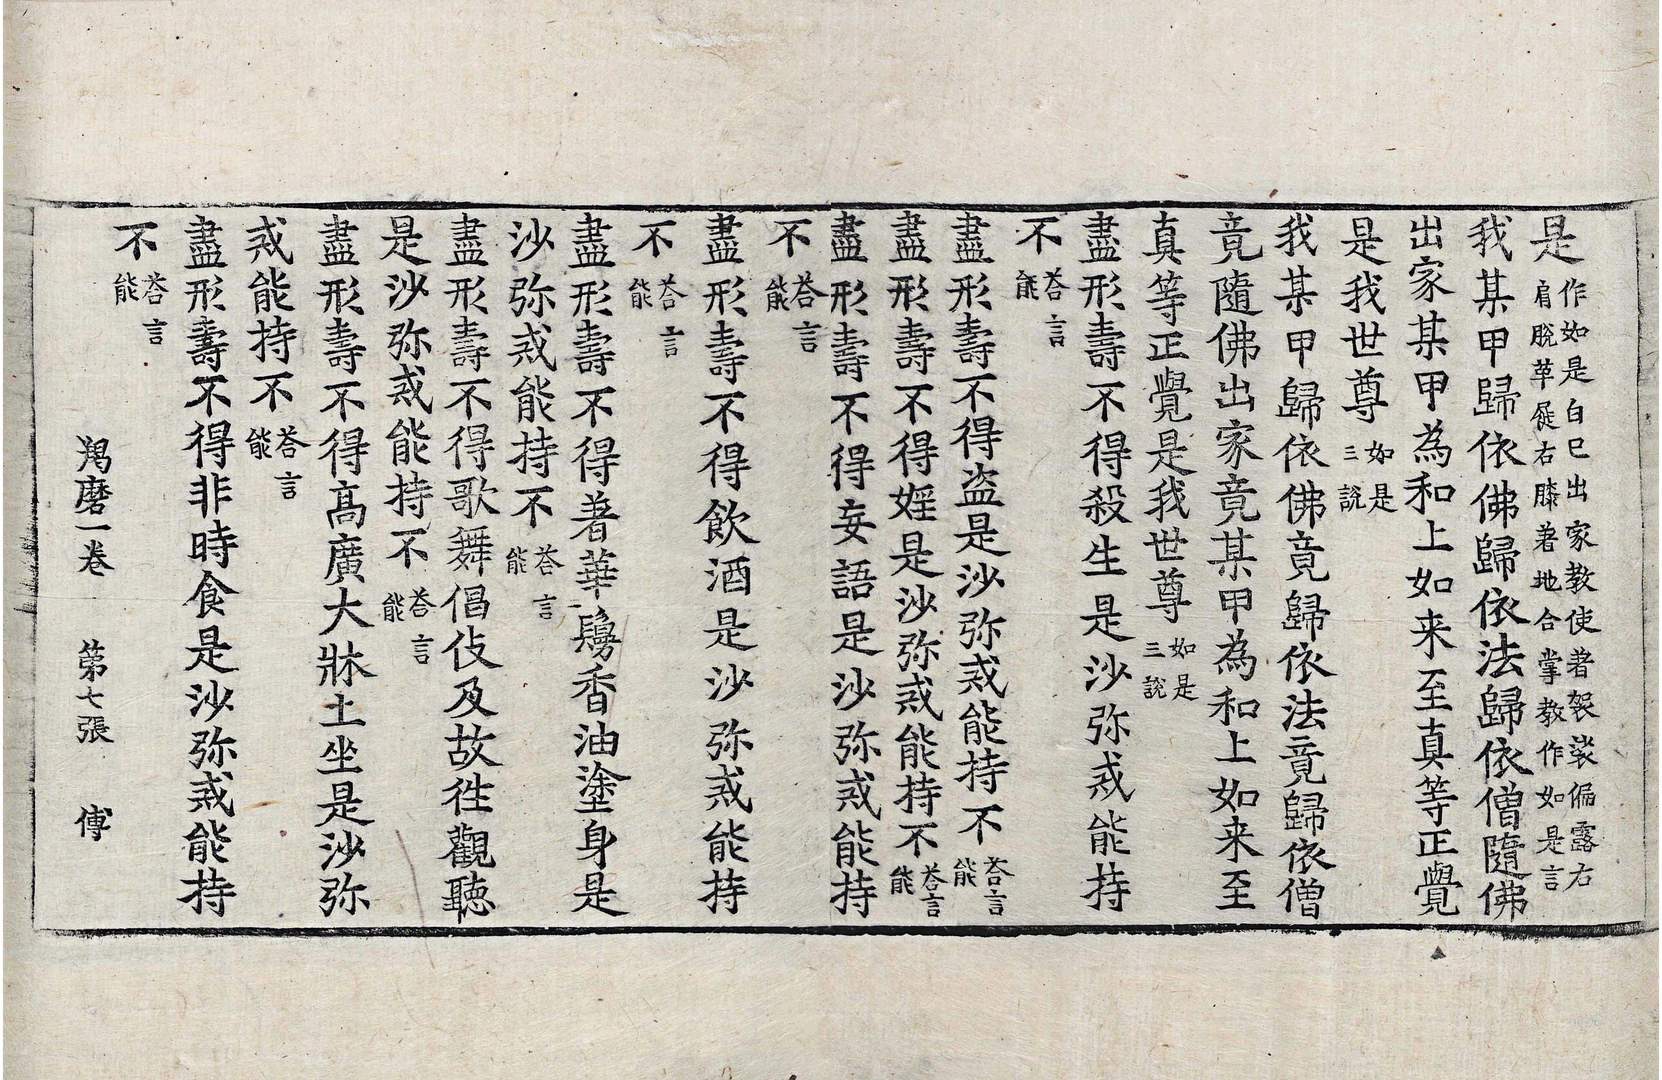 是作如是白已出家教使著袈裟偏露右肩脫革屣右膝著地合掌教作如是言
我某甲歸依佛歸依法歸依僧隨佛
出家某甲為和上如来至真等正覺
是我世尊如是三說
我某甲歸依佛竟歸依法竟歸依僧
竟隨佛出家竟某甲為和上如来至
真等正覺是我世尊如是三說
盡形壽不得殺生是沙弥戒能持
不荅言能
盡形壽不得盗是沙弥戒能持不荅言能
盡形壽不得婬是沙弥戒能持不荅言能
盡形壽不得妄語是沙弥戒能持
不荅言能
盡形壽不得飲酒是沙弥戒能持
不荅言能
盡形壽不得著華鬘香油塗身是
沙弥戒能持不荅言能
盡形壽不得歌舞倡伎及故徃觀聽
是沙弥戒能持不荅言能
盡形壽不得髙廣大牀上坐是沙弥
戒能持不荅言能
盡形壽不得非時食是沙弥戒能持
不荅言能
羯磨一卷 第七張 傅